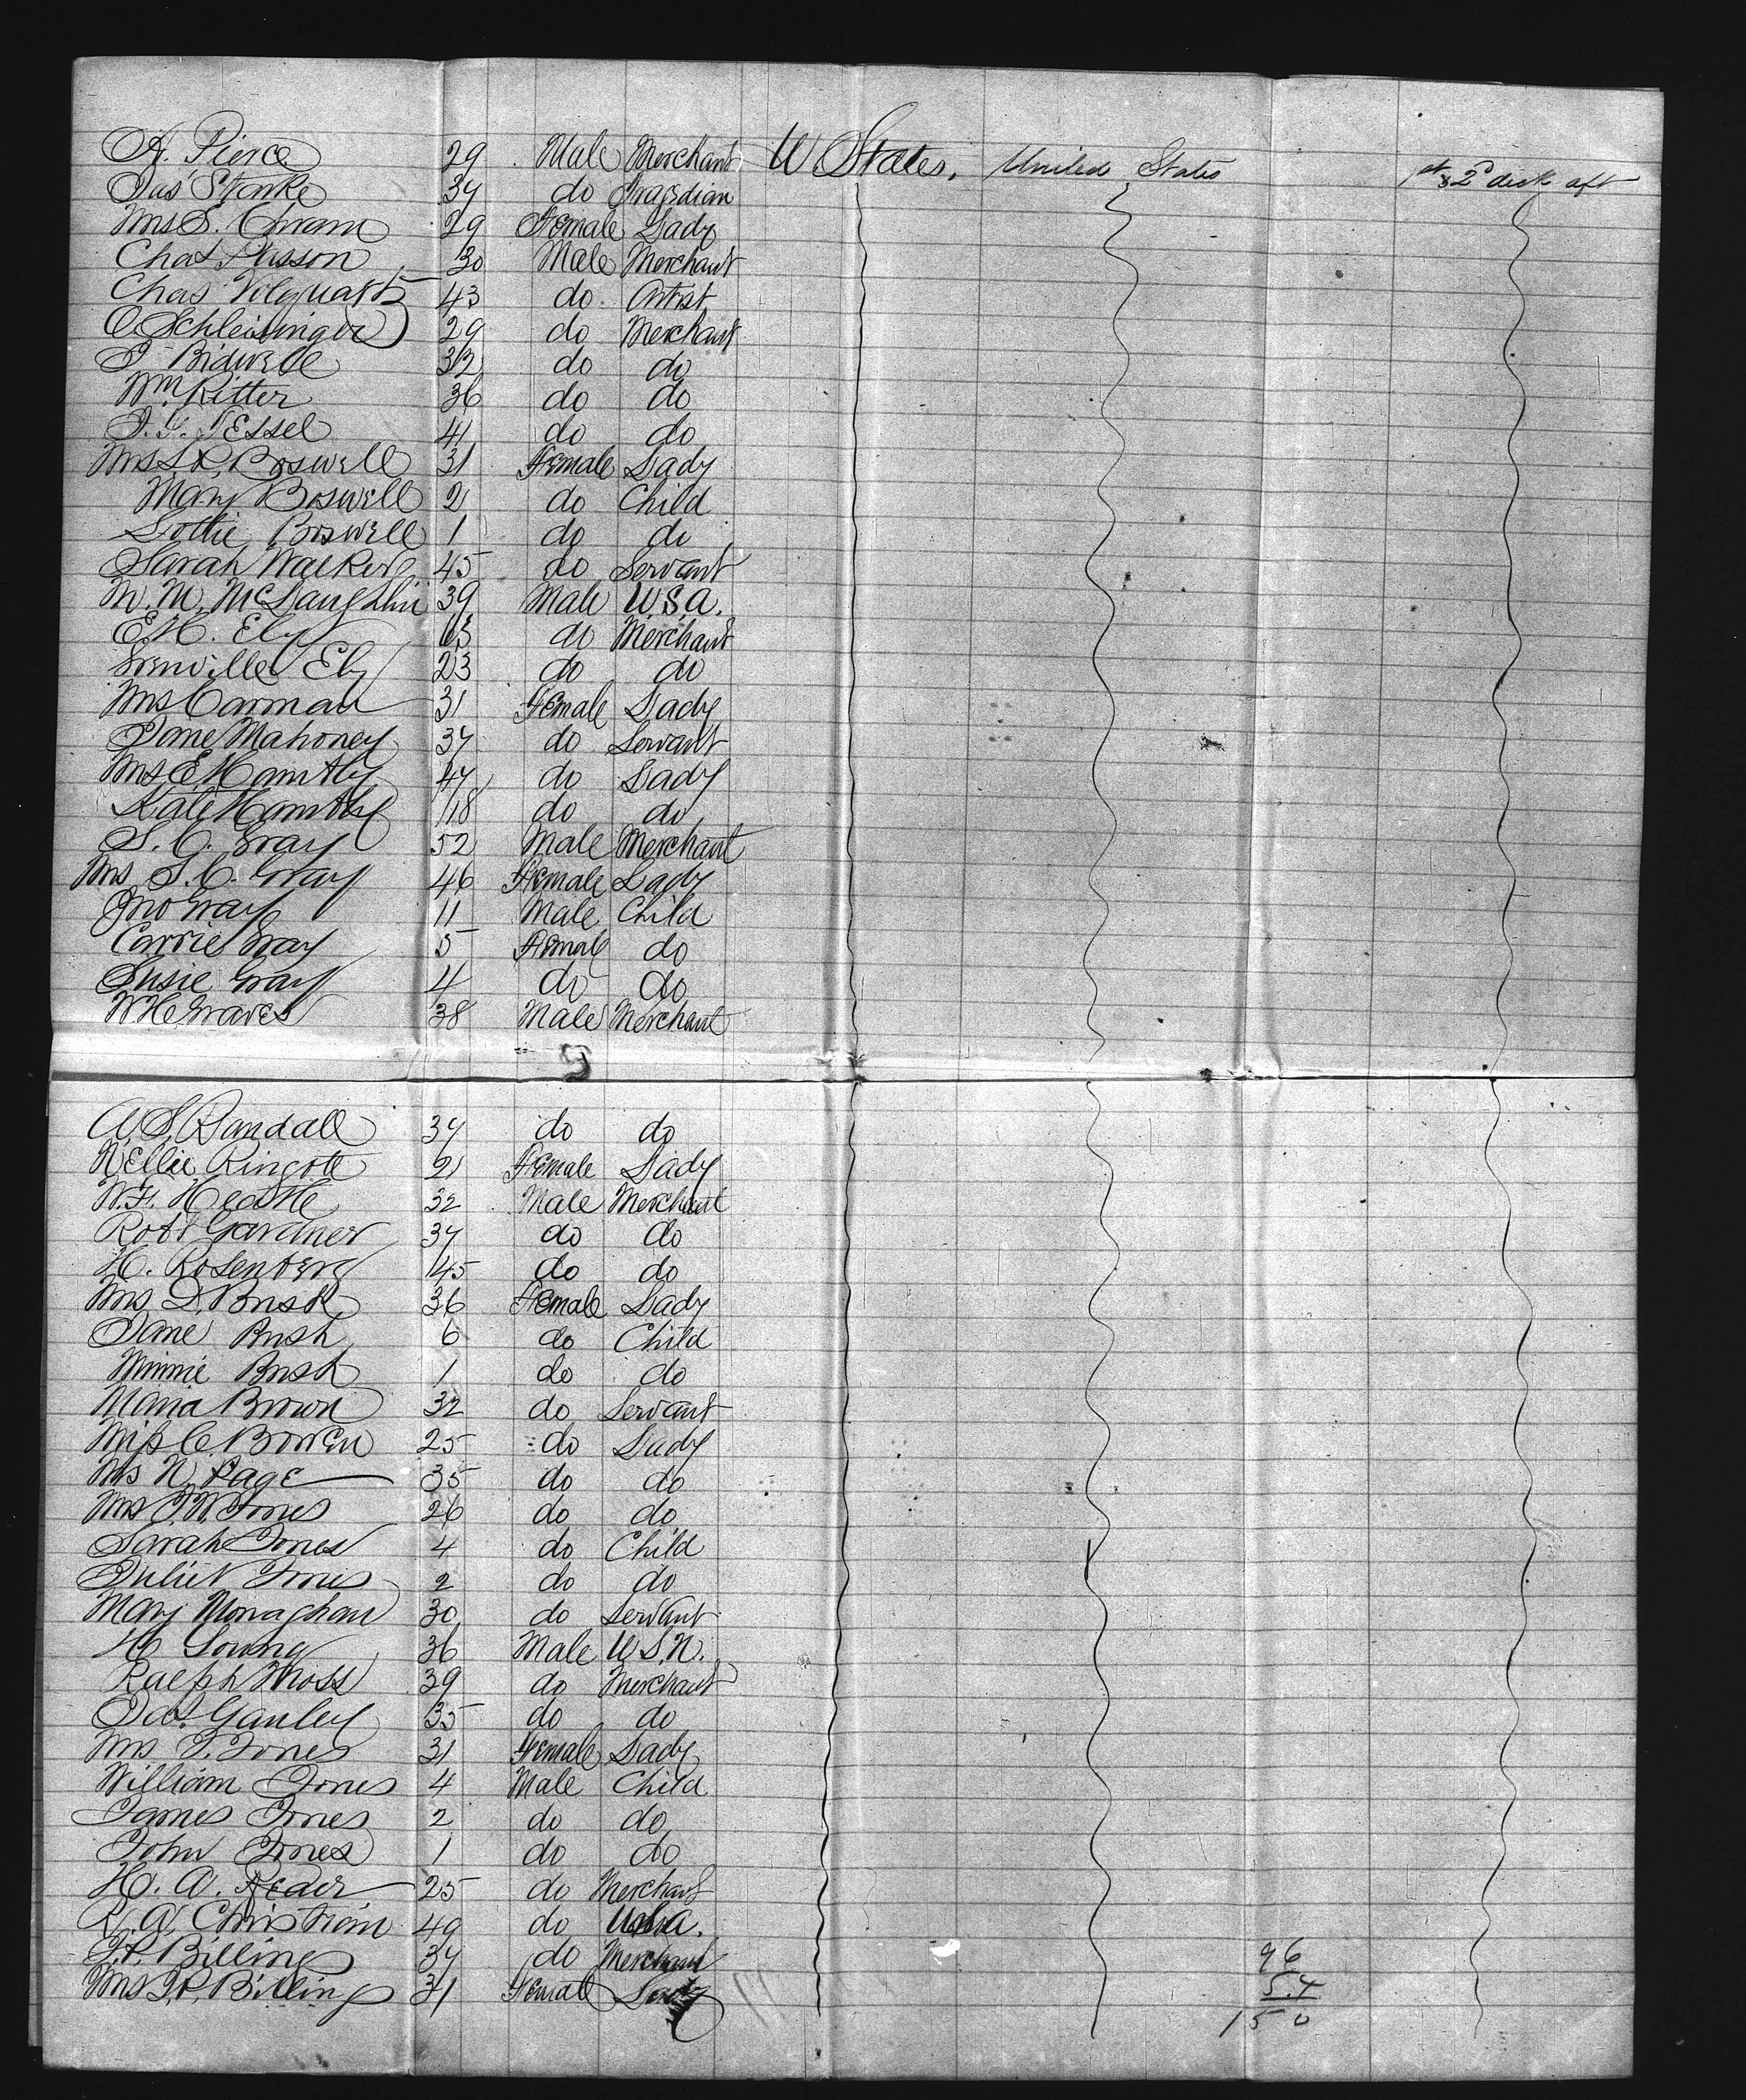 A. Pierce 29 Male Merchant U States, United States 1st & 2d deck aft
Jas Starke 34 do Tragedian
Mrs S. Oram 29 Female Lady
Chas Plusson 30 Male Merchant
Chas 43 do Artist
O Schleisinger 29 do Merchant
J Bidwell 32 do do
Wm Ritter 36 do do
41 do do
Mrs L R. Boswell 31 Female Lady
Mary Boswell 2 do Child
Lottie Boswell 1 do do
Sarah Walker 45 do Servant
W. M. McLaughlin 39 Male U.S.A.
E.H. Ely 63 do Merchant
Grenville Ely 23 do do
Mrs Carman 31 Female Lady
Jane Mahoney 37 do Servant
Mrs E. Hamtly 47 do Lady
Kate Hamtly 18 do do
S. C. Gray 52 Male Merchant
Mrs S. C. Gray 46 Female Lady
Jno Gray 11 Male Child
Carrie Gray 5 Female do
Susie Gray 4 do do
W.H. Graves 38 Male Merchant
A S Randall 34 do do
Nellie Ringott 21 Female Lady
W.F. Heastle 32 Male Merchant
Robt Gardner 37 do do
H. Rosenberg 45 do do
Mrs D. Bush 36 Female Lady
Jane Bush 6 do Child
Minnie Bush 1 do do
Maria Brown 32 do Servant
Miss C. Bowen 25 do Lady
Mrs N. Page 35 do do
Mrs J W Jones 26 do do
Sarah Jones 4 do Child
Juliet Jones 2 do do
Mary Monaghan 30 do Servant
H Young 36 Male U S.N.
Ralph Moss 39 do Merchant
Jas. Ganley 35 do do
Mrs J. Jones 31 Female Lady
William Jones 4 Male Child
James Jones 2 do do
John Jones 1 do do
H. A. Reder 25 do Merchant
R. A Christian 49 do U.S.A.
J.P. Billing 34 do Merchant 96
Mrs J.P. Billing 31 Female Lady 54
150